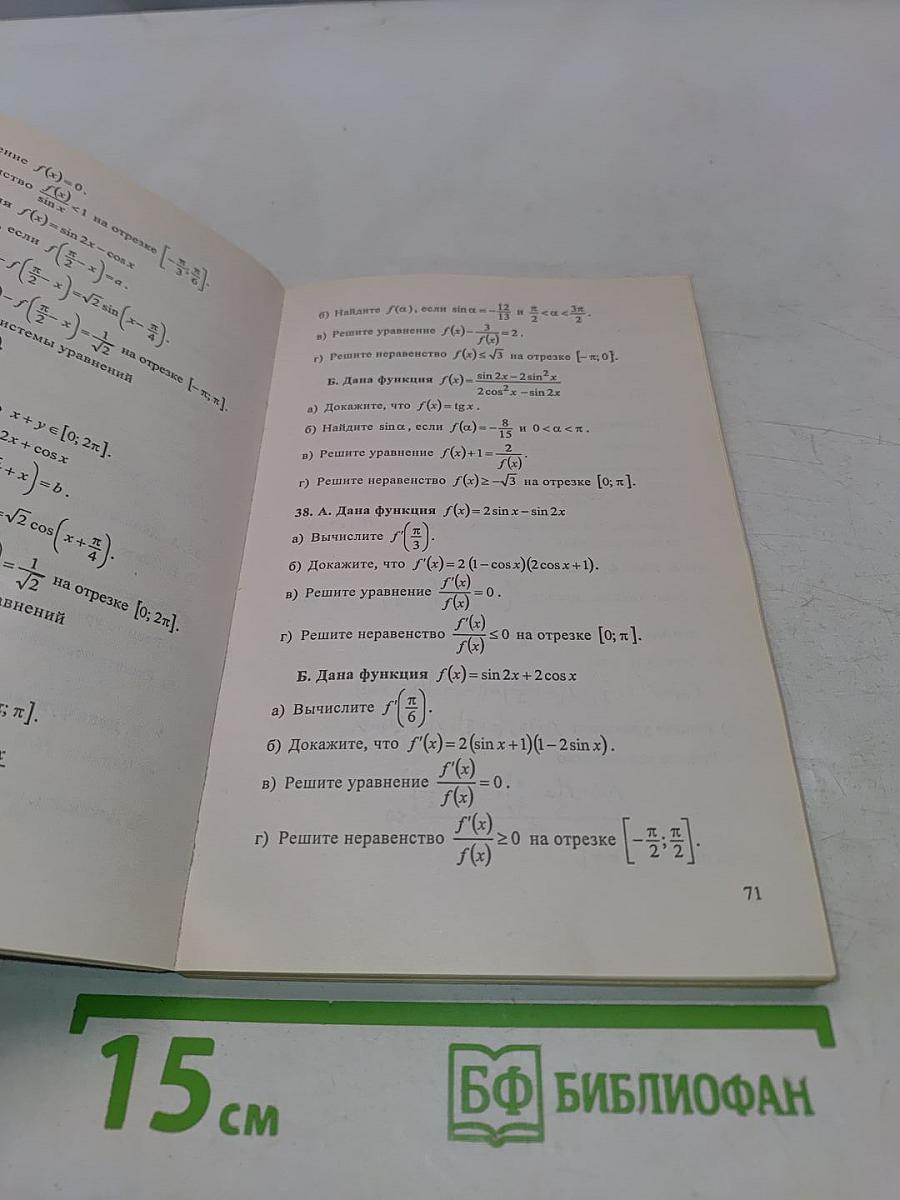 f(x)=0.
f(x)/sin x <1 на отрезке [-π/3; π/6].
f(x)=sin 2x-cos x
если f(π/2-x)=a.
f(π/2-x)=√2 sin(x-π/4).
-f(π/2-x)=1/√2 на отрезке [-π; π].
системы уравнений
x+y∈[0; 2π].
2x+cos x
+x)=b.
=√2 cos(x+π/4).
=1/√2 на отрезке [0; 2π].
; π].
б) Найдите f(α), если sin α=-12/13 и π/2<α<3π/2.
в) Решите уравнение f(x)-3/f(x)=2.
г) Решите неравенство f(x)≤√3 на отрезке [-π; 0].
Б. Дана функция f(x)=(sin 2x-2sin²x)/(2cos²x-sin 2x)
а) Докажите, что f(x)=tg x.
б) Найдите sin α, если f(α)=-8/15 и 0<α<π.
в) Решите уравнение f(x)+1=2/f(x).
г) Решите неравенство f(x)≥-√3 на отрезке [0; π].
38. А. Дана функция f(x)=2sin x-sin 2x
а) Вычислите f'(π/3).
б) Докажите, что f'(x)=2(1-cos x)(2cos x+1).
в) Решите уравнение f'(x)/f(x)=0.
г) Решите неравенство f'(x)/f(x)≤0 на отрезке [0; π].
Б. Дана функция f(x)=sin 2x+2cos x
а) Вычислите f'(π/6).
б) Докажите, что f'(x)=2(sin x+1)(1-2sin x).
в) Решите уравнение f'(x)/f(x)=0.
г) Решите неравенство f'(x)/f(x)≥0 на отрезке [-π/2; π/2].
71
15 см
БФ БИБЛИОФАН